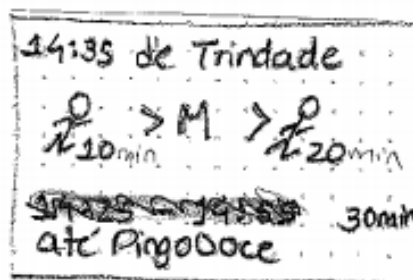 14:35 de Trindade
10min > M > 20min
30min
até PingoDoce